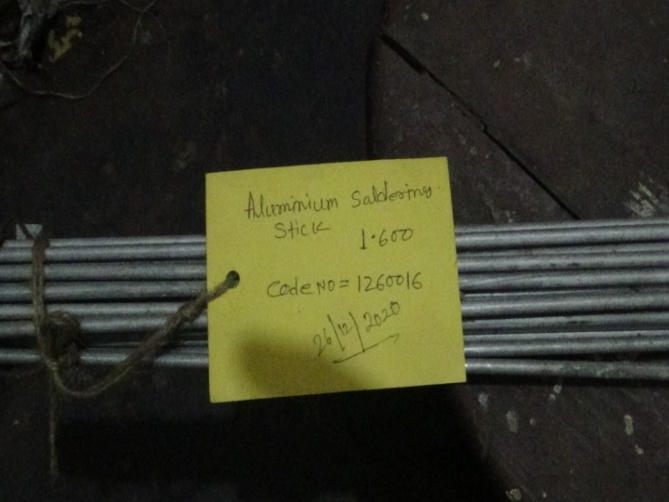 Aluminium Saldering
Stick
1.600
Code NO = 1260016
26/12/2020